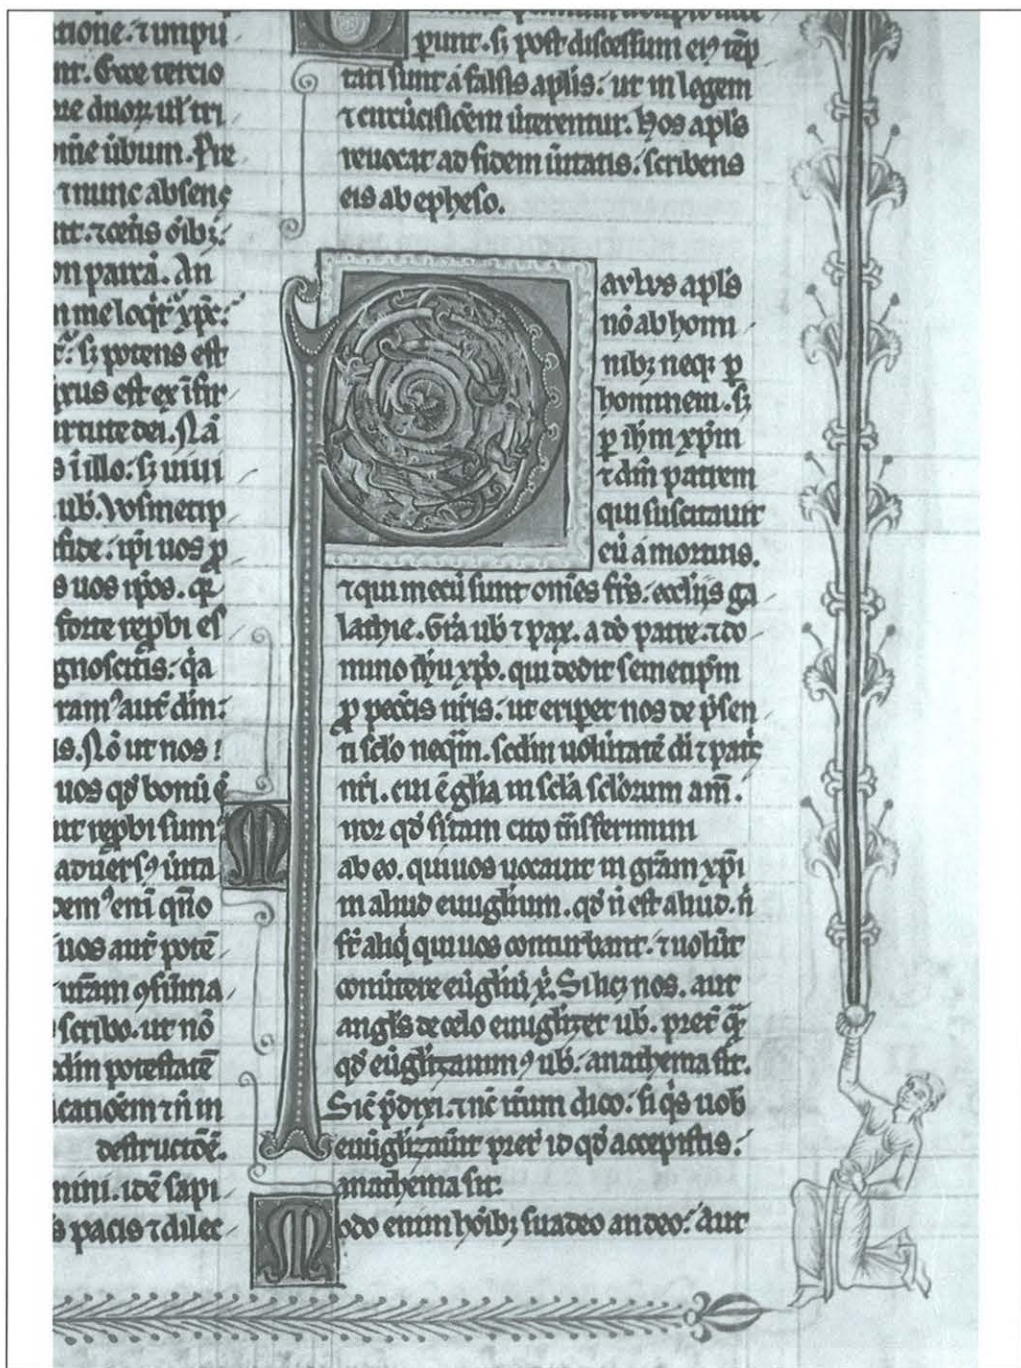 ctione. ⁊ impu
nt. Ecce tercio
ore duoꝝ ul̃ tri
om̃e ũbum. Pre
⁊ nunc absens
nt. ⁊ cet̃is oĩbꝫ.
on parcã. An
n me loqͥt᷑ xp̃c.
sꝫ potens est
ixus est ex ĩfir
irtute dei. Nã
s ĩ illo: sꝫ uiui
ub̃. Vosmetip
fide. ip̃i uos ꝓ
s uos ip̃os. 
forte rep̃bi es
gnoscitis: qͣ
ramꝰ aut̃ dm̃:
is. Nõ ut nos
uos qd̃ bonũ ẽ
ut rep̃bi sumꝰ
aduersꝰ ũita
demꝰ eni qñ
uos aut̃ potẽ
ur̃am ꝯsũma
scribo. ut nõ
cdm̃ potestatẽ
icatiõem ⁊ ñ in
destructõẽ.
mini. idẽ sapi
s pacis ⁊ dilec
punt. sꝫ post discessum eiꝰ tẽp
tati sunt á falsis ap̃lis. ut in legem
⁊ circũcisiõem ũterentur. Hos ap̃ls
reuocat ad fidem ũitatis. scribens
eis ab epheso.
P
avlvs apl̃s
nõ ab homi
nibꝫ neqꝫ ꝑ
hominem. sꝫ
ꝑ ih̃m xp̃m
⁊ dm̃ patrem
qui suscitauit
eũ á mortuis.
⁊ qui mecũ sunt om̃es fr̃s. eccl̃iis ga
lathie. Gr̃a ub̃ ⁊ pax. a dõ patre. ⁊ do
mino ih̃u xp̃o. qui dedit semetip̃m
ꝓ pecc̃is nr̃is. ut eriꝑet nos de p̃sen
ti scl̃o neqͣm. scdm̃ uolũtatẽ di ⁊ pat̃s
nr̃i. cui ẽ gl̃ia in scl̃a scl̃orum am̃.
M
iror qd̃ sic̃ tam cito tñsferimini
ab eo. qui uos uocauit in gr̃am xp̃i
in aliud euugl̃ium. qd̃ ñ est aliud. ñ
st̃ aliqͥ qui uos conturbant. ⁊ uolũt
conũtere eũgl̃iũ x̃. S; licꝫ nos. aut
angl̃s de celo euugl̃izet ub̃. pret̃ qͣ
qd̃ eũgl̃izauimꝰ ub̃. anathema sit.
Sic̃ p̃dixi. ⁊ nc̃ it̃um dico. si qͥs uob̃
euũgl̃izau̾it pret̃ id qd̃ accepistis.
anathema sit.
M
odo enim hõibꝫ suadeo an deo. Aut